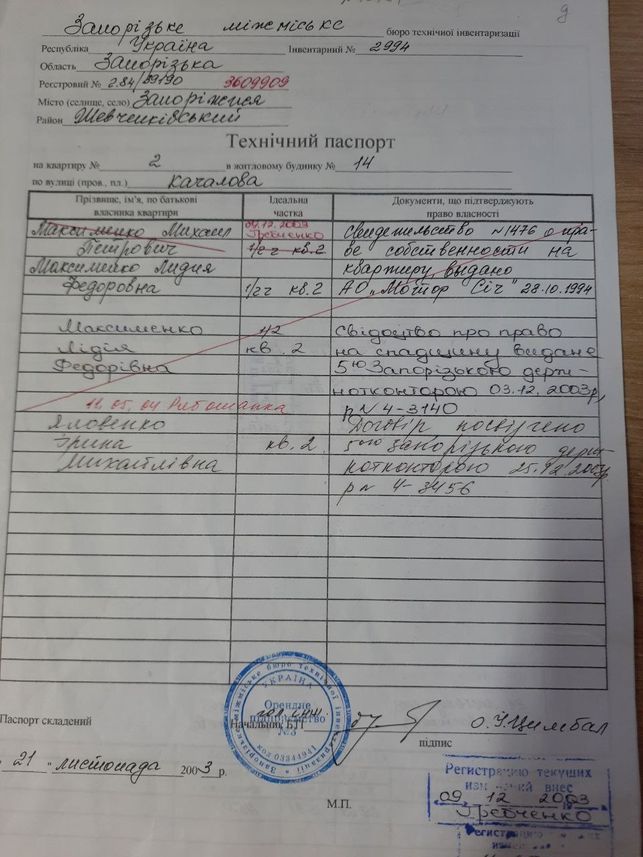 9
Запорізьке міжміське бюро технічної інвентаризації
Республіка Україна Інвентарний № 2994
Область Запорізька
Реєстровий № 2.84/39190 3609909
Місто (селище, село) Запоріжжя
Район Шевченківський
Технічний паспорт
на квартиру № 2 в житловому будинку № 14
по вулиці (пров., пл.) Качалова
Прізвище, ім'я, по батькові власника квартири
Ідеальна частка
Документи, що підтверджують право власності
09.12.2003
Максименко Михаил Гребченко Свидетельство №1476 о пра-
Петрович 1/2 ч кв.2 ве собственности на
Максименко Лидия квартиру выдано
Федоровна 1/2 ч кв.2 АО "Мотор Січ" 28.10.1994
Максименко 1/2 Свідоцтво про право
Лідія кв. 2 на спадщину видане
Федорівна 5ю Запорізькою держ-
нотконторою 03.12.2003р,
11.05.04 р № 4-3140
Яловенко Договір посвідчено
Ірина кв. 2 5ою Запорізькою держ-
Михайлівна нотконторою 25.12.2003р
р № 4-3456
УКРАЇНА
Орендне
підприємство
№3
Запорізьке міжміське бюро технічної інвентаризації
Паспорт складений Начальник БТІ О.У.Цимбал
підпис
" 21 " листопада 2003 р.
М.П.
Регистрацию текущих
изменений внес
09. 12 2003
Гребченко
Регистрацию